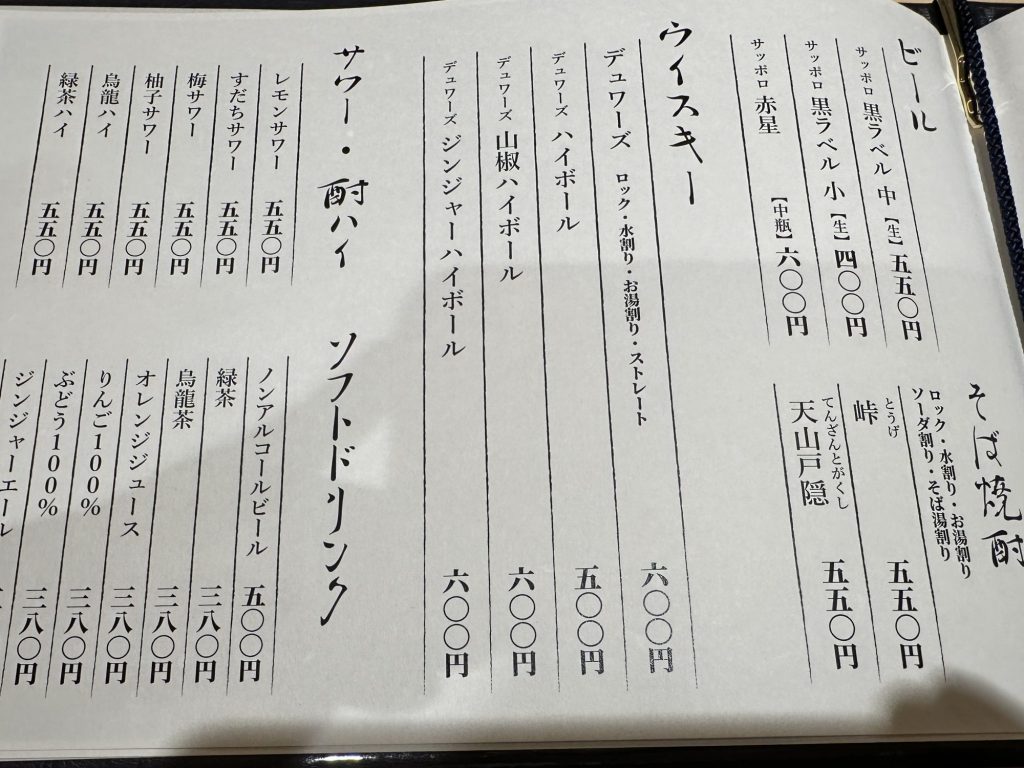 ビール
サッポロ 黒ラベル 中 【生】 五五〇円
サッポロ 黒ラベル 小 【生】 四〇〇円
サッポロ 赤星 【中瓶】 六〇〇円
そば焼酎
ロック・水割り・お湯割り
ソーダ割り・そば湯割り
とうげ
峠 五五〇円
てんざんとがくし
天山戸隠 五五〇円
ウイスキー
デュワーズ ロック・水割り・お湯割り・ストレート 六〇〇円
デュワーズ ハイボール 五〇〇円
デュワーズ 山椒ハイボール 六〇〇円
デュワーズ ジンジャーハイボール 六〇〇円
サワー・酎ハイ
レモンサワー 五五〇円
すだちサワー 五五〇円
梅サワー 五五〇円
柚子サワー 五五〇円
烏龍ハイ 五五〇円
緑茶ハイ 五五〇円
ソフトドリンク
ノンアルコールビール 五〇〇円
緑茶 三八〇円
烏龍茶 三八〇円
オレンジジュース 三八〇円
りんご100% 三八〇円
ぶどう100% 三八〇円
ジンジャーエール